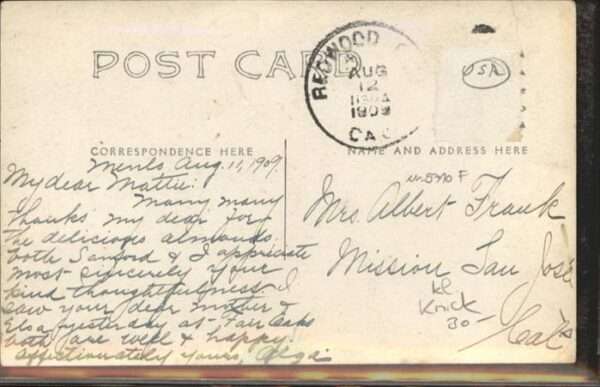 POST CARD
REDWOOD
AUG
12
1909
CAL
USA
CORRESPONDENCE HERE
NAME AND ADDRESS HERE
Menlo Aug. 11, 1909.
My dear Mattie:
Many many
thanks my dear for
the delicious almonds
both Sanford & I appriciate
most sincerely your
kind thoughtfulness I
saw your dear mother &
Elsa yesterday at Fair Oaks
both are well & happy.
Affectionately yours, Olga
Mrs. Albert Frank
Mission San José
Cal
Knick
30-